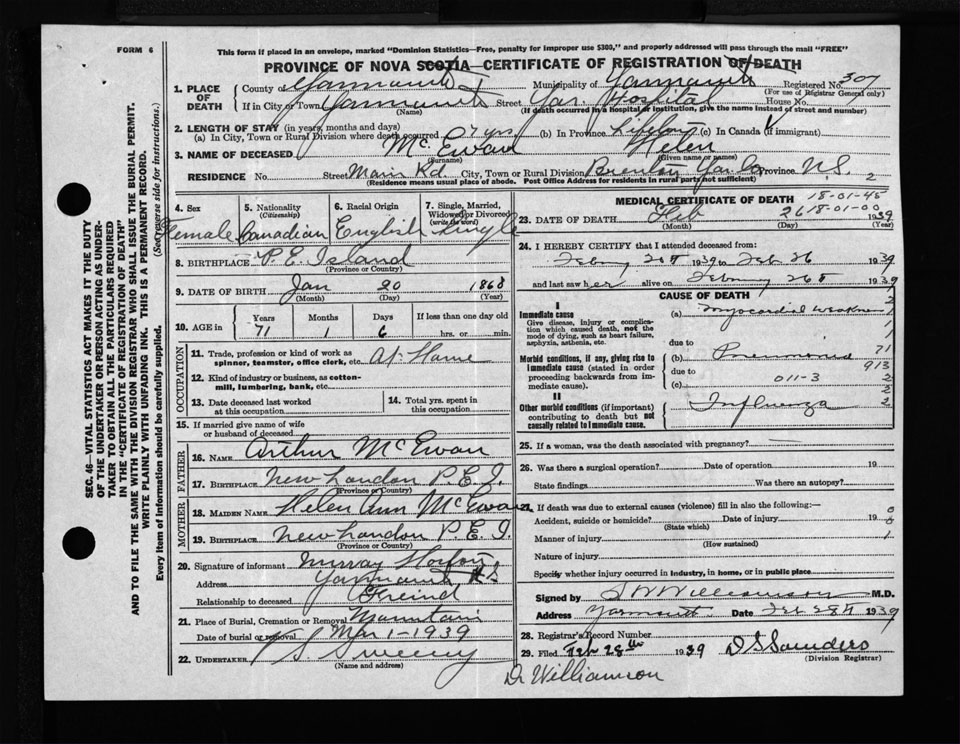 FORM 6
This form if placed in an envelope, marked "Dominion Statistics—Free, penalty for improper use $300," and properly addressed will pass through the mail "FREE"
PROVINCE OF NOVA SCOTIA—CERTIFICATE OF REGISTRATION OF DEATH
1. PLACE OF DEATH
County of Yarmouth Municipality of Yarmouth Registered No. 307
(For use of Registrar General only)
If in City or Town Yarmouth Street Yar. Hospital House No.
(Name) (If death occurred in a hospital or institution, give the name instead of street and number)
2. LENGTH OF STAY (in years, months and days)
(a) In City, Town or Rural Division where death occurred 57 yrs (b) In Province (c) In Canada (if immigrant)
3. NAME OF DECEASED McEwan Helen
(Surname) (Given name or names)
RESIDENCE No. Street Main Rd. City, Town or Rural Division Province N.S. 2
(Residence means usual place of abode. Post Office Address for residents in rural parts not sufficient)
4. Sex
Female
5. Nationality
(Citizenship)
Canadian
6. Racial Origin
English
7. Single, Married, Widowed or Divorced
(write the word)
Single
8. BIRTHPLACE P. E. Island
(Province or Country)
9. DATE OF BIRTH Jan 20 1868
(Month) (Day) (Year)
10. AGE in Years Months Days If less than one day old
71 1 6 hrs. or min.
OCCUPATION
11. Trade, profession or kind of work as spinner, teamster, office clerk, etc. At Home
12. Kind of industry or business, as cotton-mill, lumbering, bank, etc.
13. Date deceased last worked at this occupation
14. Total yrs. spent in this occupation
15. If married give name of wife or husband of deceased
FATHER
16. NAME Arthur McEwan
17. BIRTHPLACE New London P.E.I.
(Province or Country)
MOTHER
18. MAIDEN NAME Helen Ann McEwan
19. BIRTHPLACE New London P.E.I.
(Province or Country)
20. Signature of informant Murray Horton
Address Yarmouth N S
Relationship to deceased Freind
21. Place of Burial, Cremation or Removal Mountain
Date of burial or removal Mar 1-1939
22. UNDERTAKER Sweeny
(Name and address)
MEDICAL CERTIFICATE OF DEATH 18-01-45
18-01-00
23. DATE OF DEATH Feb 26 1939
(Month) (Day) (Year)
24. I HEREBY CERTIFY that I attended deceased from:
Feby 20th 1939 to Feb 26 1939
and last saw her alive on Feby 26th 1939
CAUSE OF DEATH
I
Immediate cause
Give disease, injury or complication which caused death, not the mode of dying, such as heart failure, asphyxia, asthenia, etc.
(a) Myocardial Weakness
due to
Morbid conditions, if any, giving rise to Immediate cause (stated in order proceeding backwards from immediate cause).
(b) Pneumonia 71
due to 913
(c) 011-3
II
Other morbid conditions (if important) contributing to death but not causally related to Immediate cause.
Influenza
25. If a woman, was the death associated with pregnancy?
26. Was there a surgical operation? Date of operation 19
State findings Was there an autopsy?
27. If death was due to external causes (violence) fill in also the following:—
Accident, suicide or homicide? Date of injury 19
(State which)
Manner of injury
(How sustained)
Nature of injury
Specify whether injury occurred in industry, in home, or in public place
Signed by Williamson M.D.
Address Yarmouth Date Feb 28th 1939
28. Registrar's Record Number
29. Filed Feb 28th 1939 D S Saunders
(Division Registrar)
Dr Williamson
SEC. 46—VITAL STATISTICS ACT MAKES IT THE DUTY
OF THE UNDERTAKER OR PERSON ACTING AS UNDER-
TAKER TO OBTAIN ALL THE PARTICULARS REQUIRED
IN THE "CERTIFICATE OF REGISTRATION OF DEATH"
AND TO FILE THE SAME WITH THE DIVISION REGISTRAR WHO SHALL ISSUE THE BURIAL PERMIT.
WRITE PLAINLY WITH UNFADING INK. THIS IS A PERMANENT RECORD.
Every item of information should be carefully supplied. (See reverse side for instructions.)